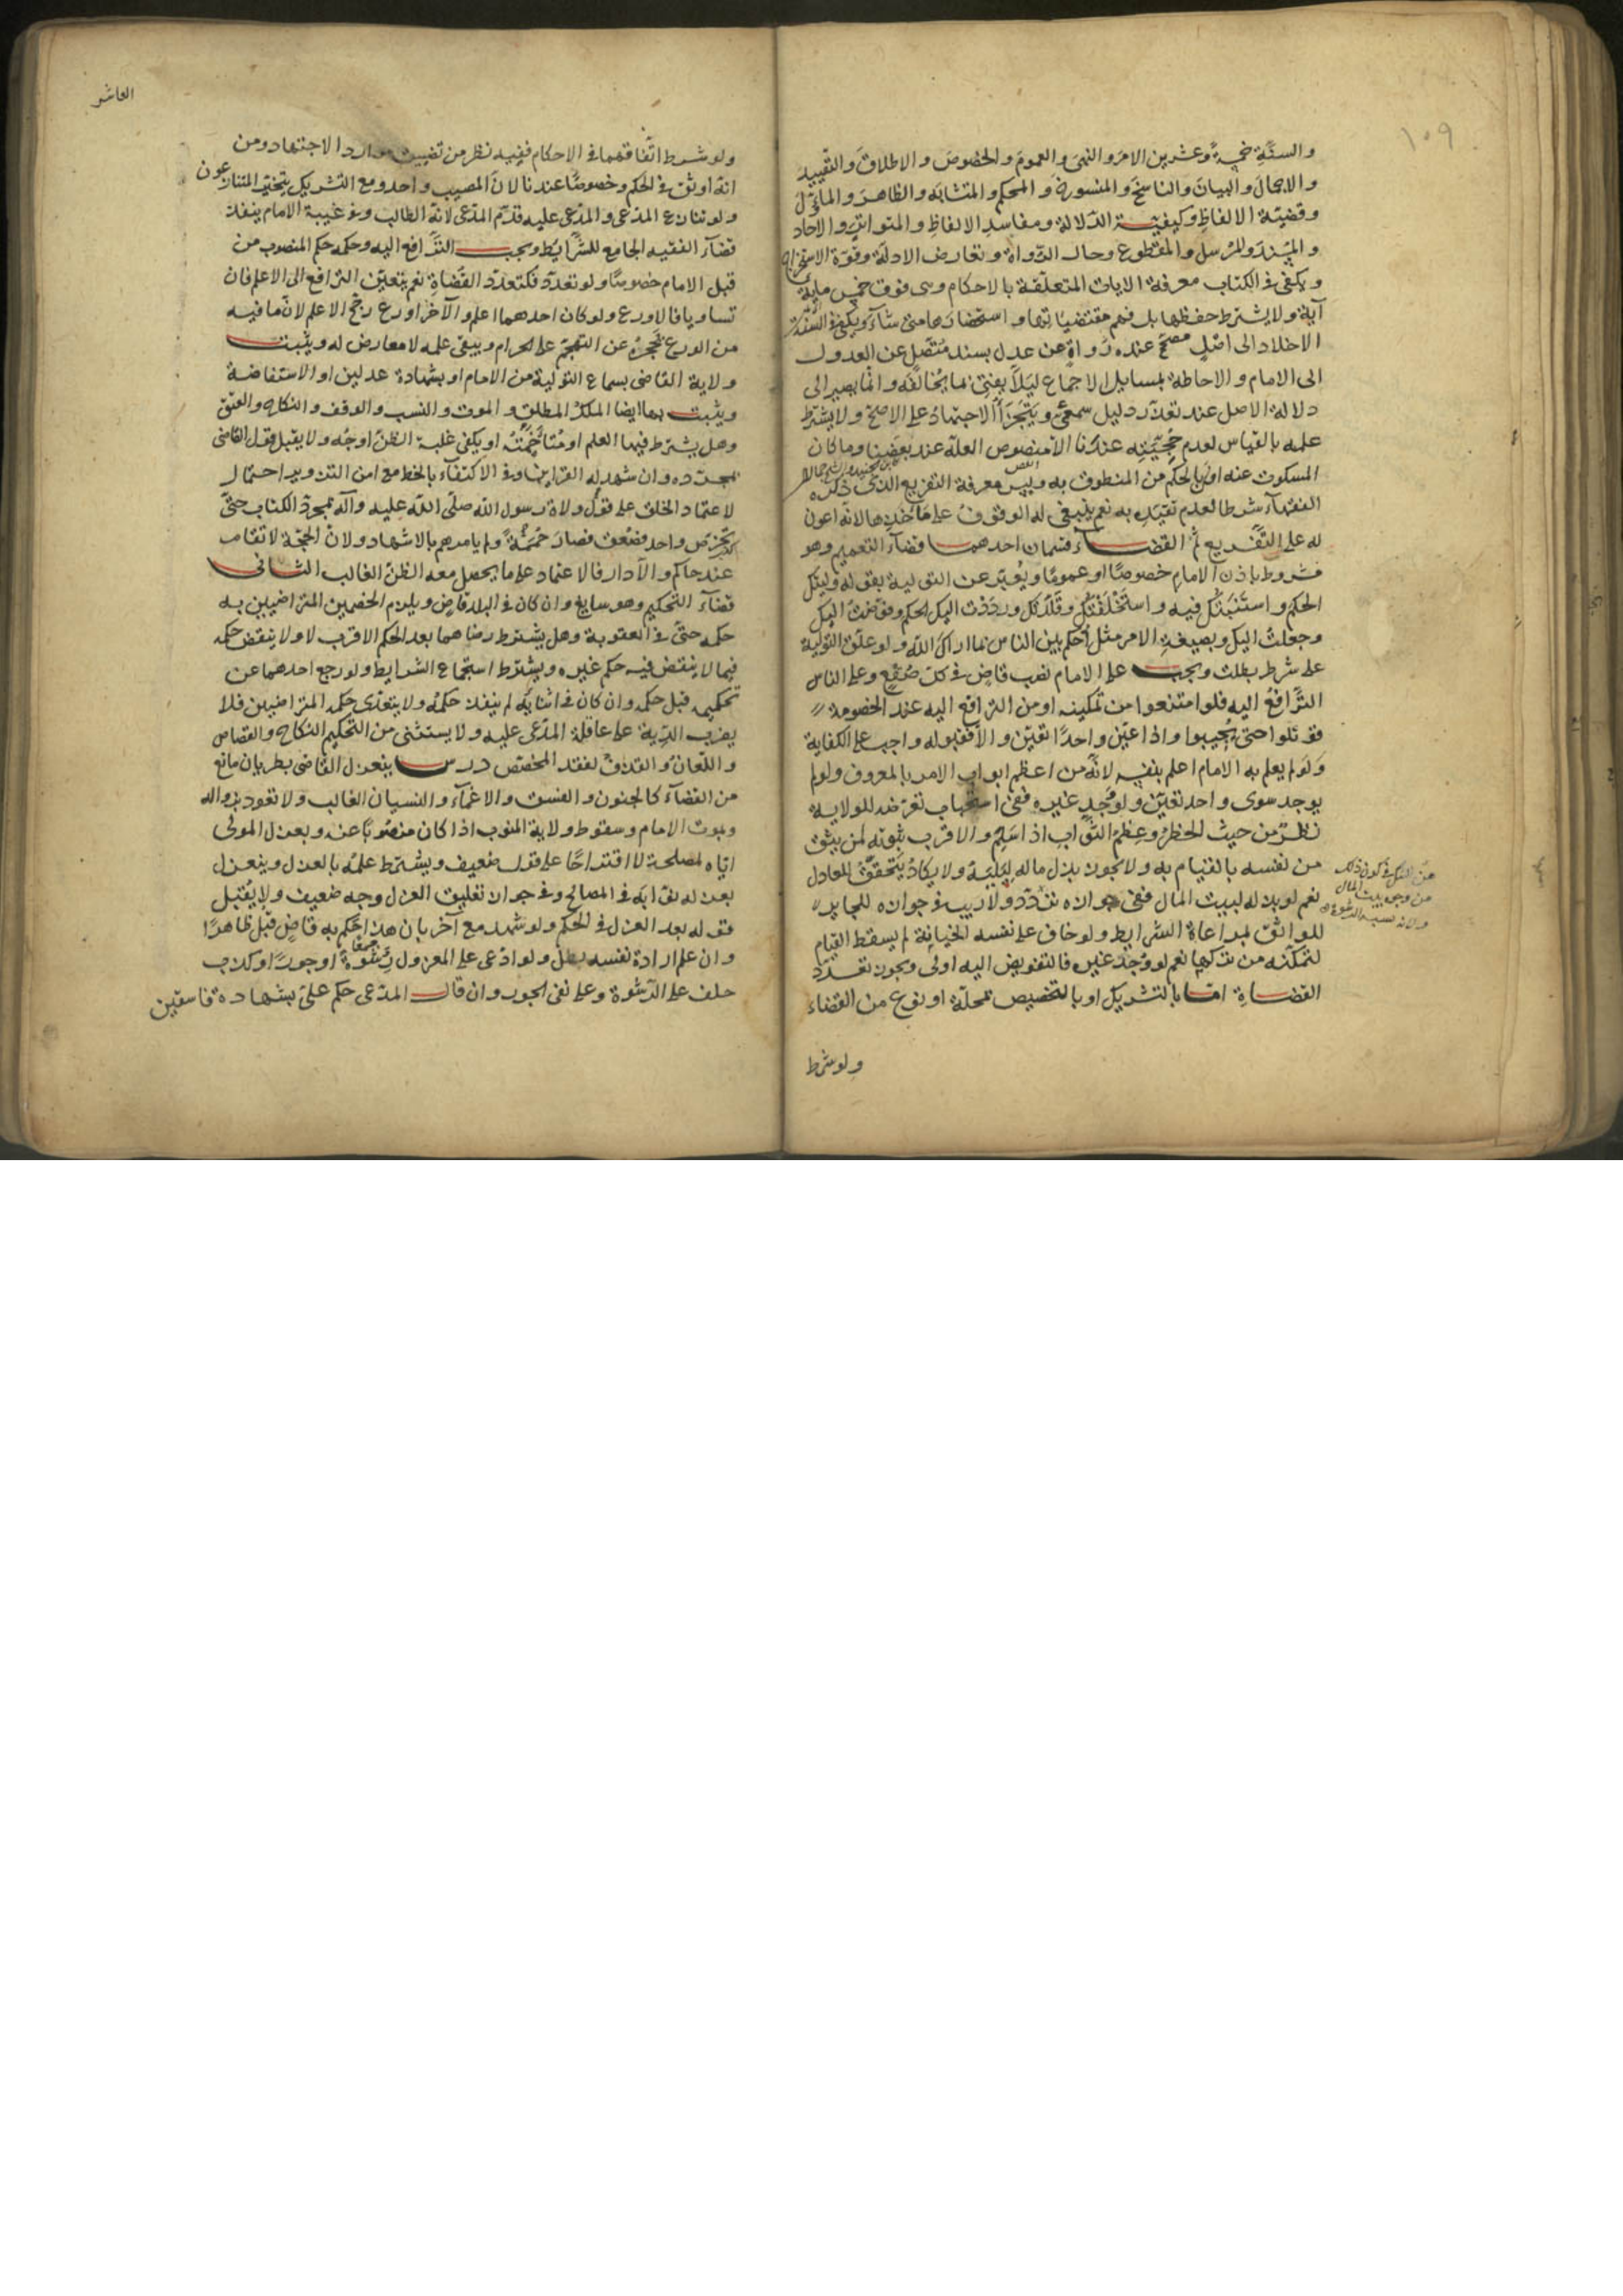 ١٠٩
والسنَّةِ خمسةً وعشرين الامرَ والنهىَ والعمومَ والخصوصَ والاطلاقَ والتقييدَ
والاجمالَ والبيانَ والناسخَ والمنسوخَ والمحكمَ والمتشابهَ والظاهرَ والمأوّلَ
وقضيّة الالفاظِ وكيفيّة الدّلالة ومفاسدِ الالفاظِ والمتواترِ والاحاد
والمسندَ والمرسل والمقطوع وحال الرّواة وتعارض الادلّة وقوّة الاستخراج
ويكفى فى الكتاب معرفة الايات المتعلّقة بالاحكام وهى فوق خمس ماية
آية ولا يشترط حفظها بل فهم مقتضياتها واستحضارها متى شآء ويكفى فى السنّة
الاخلاد الى اصلٍ مصحّح عنده رواةٍ عن عدل بسند متّصل عن العدول
الى الامام والاحاطة بمسايل الاجماع ليلاّ يفتى بما يخالفه وانّما يصير الى
دلالة الاصل عند تعذّر دليل سمعىّ ويتجزّأ الاجتهاد على الاصحّ ولا يشترط
علمه بالقياس لعدم حجّيّته عندنا الاّ منصوص العلّة عند بعضنا وما كان
المسكوت عنه اولى بالحكم من المنطوق به وليس معرفة التفريع الذى ذكره
الفقهآء شرطا لعدم تقيّده به نعم ينبغى له الوقوف على مآخذها لانّه اعون
له على التّفريع ثمّ القضاء قسمان احدهما قضآء التعميم وهو
مشروط باذن الامام خصوصًا او عمومًا ويُعبّر عن التولية بقوله ولّيتك
الحكمَ واستنبتُك فيه واستخلفتُك وقلّدتُك ورددت اليك الحكم وفوّضتُ اليك
وجعلتُ اليك وبصيغة الامر مثل اُحكم بين الناس بما اراك اللّه ولو علّق التولية
على شرط بطلت ويجب على الامام نصب قاضٍ فى كلّ صُقعٍ وعلى الناس
الترافعُ اليه فلو امتنعوا من تمكينه او من الترافع اليه عند الخصومة
قوتلوا حتى يُجيبوا واذا عيّن واحدًا تعيّن والاّ فقبوله واجب على الكفاية
ولو لم يعلم به الامام اعلم بنفسه لانّه من اعظم ابواب الامر بالمعروف ولو لم
يوجد سوى واحد تعيّن ولو وُجِد غيره ففى استحباب تعرّضه للولاية
نظر من حيث الخطر وعِظم الثواب اذا سَلِم والاقرب ثبوته لمن يثق
من نفسه بالقيام به ولا يجوز بذل مال ليليه ولا يكادُ يتحقّقُ للعادل
نعم لو بذله لبيت المال ففى جوازه تردّد ولا ريب فى جوازه للجاير
للواثق بمراعاة الشرايط ولو خاف على نفسه الخيانة لم يسقط القيام
لتمكّنه من تركها نعم لو وُجد غيره فالتفويض اليه اولى ويجوز تعدّد
القضاةِ امّا بالتشريك او بالتخصيص بمحلّة او نوع من القضاء
ولو شرط
من وجوبه بيت المال
العاشر
ولو شرط اتّفاقهما فى الاحكام ففيه نظر من تضييق موارد الاجتهاد ومن
انّه اوثق فى الحكم وخصوصًا عندنا لانّ المصيب واحد ومع التشريك يتخيّر المتنازعون
ولو تنازع المدّعى والمدّعى عليه قدّم المدّعى لانّه الطالب وفى غيبة الامام ينفذ
قضآء الفقيه الجامع للشرايط ويجب الترافع اليه وحكمه حكم المنصوب من
قبل الامام خصوصًا ولو تعدّد فكتعدّد القُضاةِ نعم يتعيّن الترافع الى الاعلم فان
تساويا فالاورع ولو كان احدهما اعلم والآخر اورع رجّح الاعلم لانّ ما فيه
من الورع يحجزه عن التهجّم على الحرام ويبقى علمه لا معارض له ويثبت
ولاية القاضى بسماع التولية من الامام او بشهادة عدلين او الاستفاضة
ويثبت بها ايضا الملك المطلق والموت والنسب والوقف والنكاح والعتق
وهل يشترط فيها العلم او متاخمته او يكفى غلبة الظنّ اوجُه ولا يقبل قول القاضى
بمجرّده وان شهد له القراين وفى الاكتفآء بالخطّ مع امن التزوير احتمال
لاعتماد الخلق على قول ولاة رسول اللّه صلّى اللّه عليه وآله بمجرّد الكتاب حتّى
عند حاكم والآدار فالاعتماد على ما يحصل معه الظنّ الغالب الثانى
قضآء التحكيم وهو سايغ وان كان فى البلد قاضٍ ويلزم الخصمين المتراضيين به
حكمه حتّى فى العقوبة وهل يشترط رضاهما بعد الحكم الاقرب لا ولا ينقض حكمه
فيما لا ينقض فيه حكم غيره ويشترط استجماع الشرايط ولو رجع احدهما عن
تحكيمه قبل حكمه وان كان فى اثنايه لم ينفذ حكمُه ولا يتعدّى حكمه المتراضيين فلا
يضرب الدّية على عاقلة المدّعى عليه ولا يستثنى من التحكيم النكاح والقصاص
واللّعانُ والقذفُ لفقد المخصّص درس ينعزل القاضى بطريان مانع
من القضآء كالجنون والفسق والاغمآء والنسيان الغالب ولا تعود بزواله
وبموت الامام وسقوط ولاية المنوب اذا كان منصوبًا عنه وبعزل المولّى
ايّاه لمصلحة لا اقتراحًا على قول ضعيف ويشترط علمُه بالعزل وينعزل
بعزله نوّابه فى المصالح وفى جواز تعليق العزل وجه ضعيف ولا يُقبل
قوله بعد العزل فى الحكم ولو شهد مع آخر بان هذا حَكم به قاضٍ قُبل ظاهرًا
وان علم ارادة نفسه بطل ولو ادّعى على المعزول رشوةً او جورًا او كذب
حلف على الرّشوة وعلى نفى الجور وان قال المدّعى حكم علىّ بشهادة فاسقين